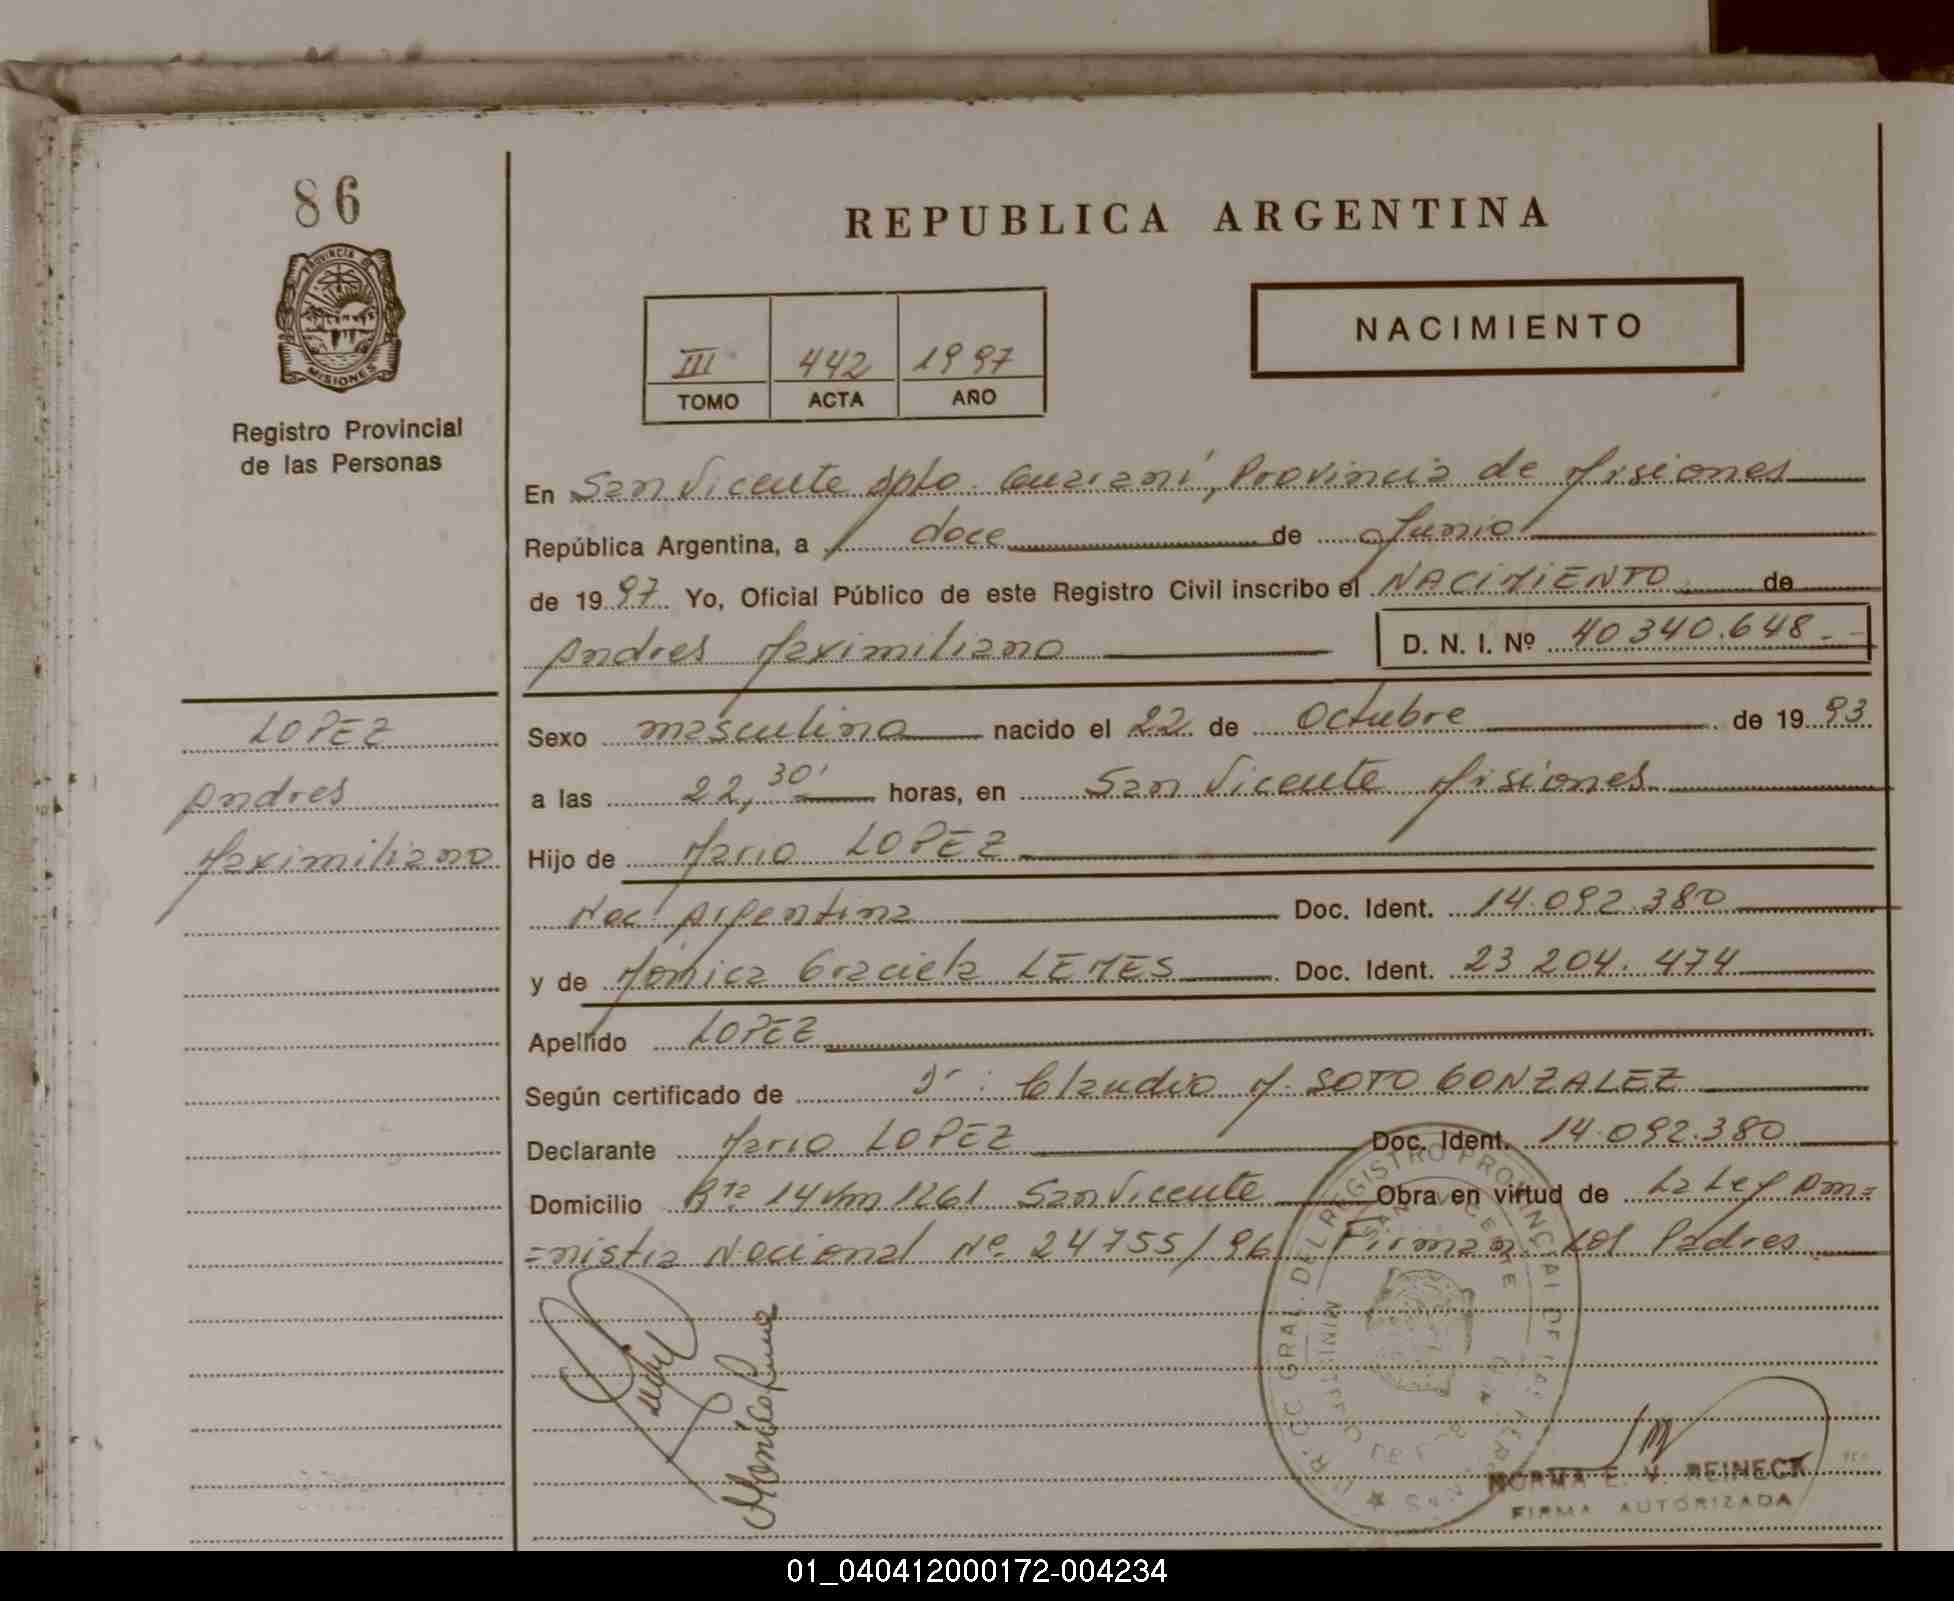 86
PROVINCIA DE
MISIONES
Registro Provincial
de las Personas
REPUBLICA ARGENTINA
III 442 1997
TOMO ACTA AÑO
NACIMIENTO
En San Vicente Dpto. Guaraní, Provincia de Misiones
República Argentina, a doce de Junio
de 1997 Yo, Oficial Público de este Registro Civil inscribo el NACIMIENTO de
Andres Maximiliano D. N. I. Nº 40340.648.-
LOPEZ
Andres
Maximiliano
Sexo masculino nacido el 22 de Octubre de 1993
a las 22,30' horas, en San Vicente Misiones
Hijo de Mario LOPEZ
Nac. Argentina Doc. Ident. 14.092.380
y de Mónica Graciela LEMES Doc. Ident. 23 204. 474
Apellido LOPEZ
Según certificado de Dr: Claudio M. SOTO GONZALEZ
Declarante Mario LOPEZ Doc. Ident. 14.092.380
Domicilio Rta 14 Km 1261 San Vicente Obra en virtud de La Ley Am=
=nistia Nacional Nº 24755/96 Firman Los Padres
Monica
NORMA E. V. REINECK
FIRMA AUTORIZADA
01_040412000172-004234